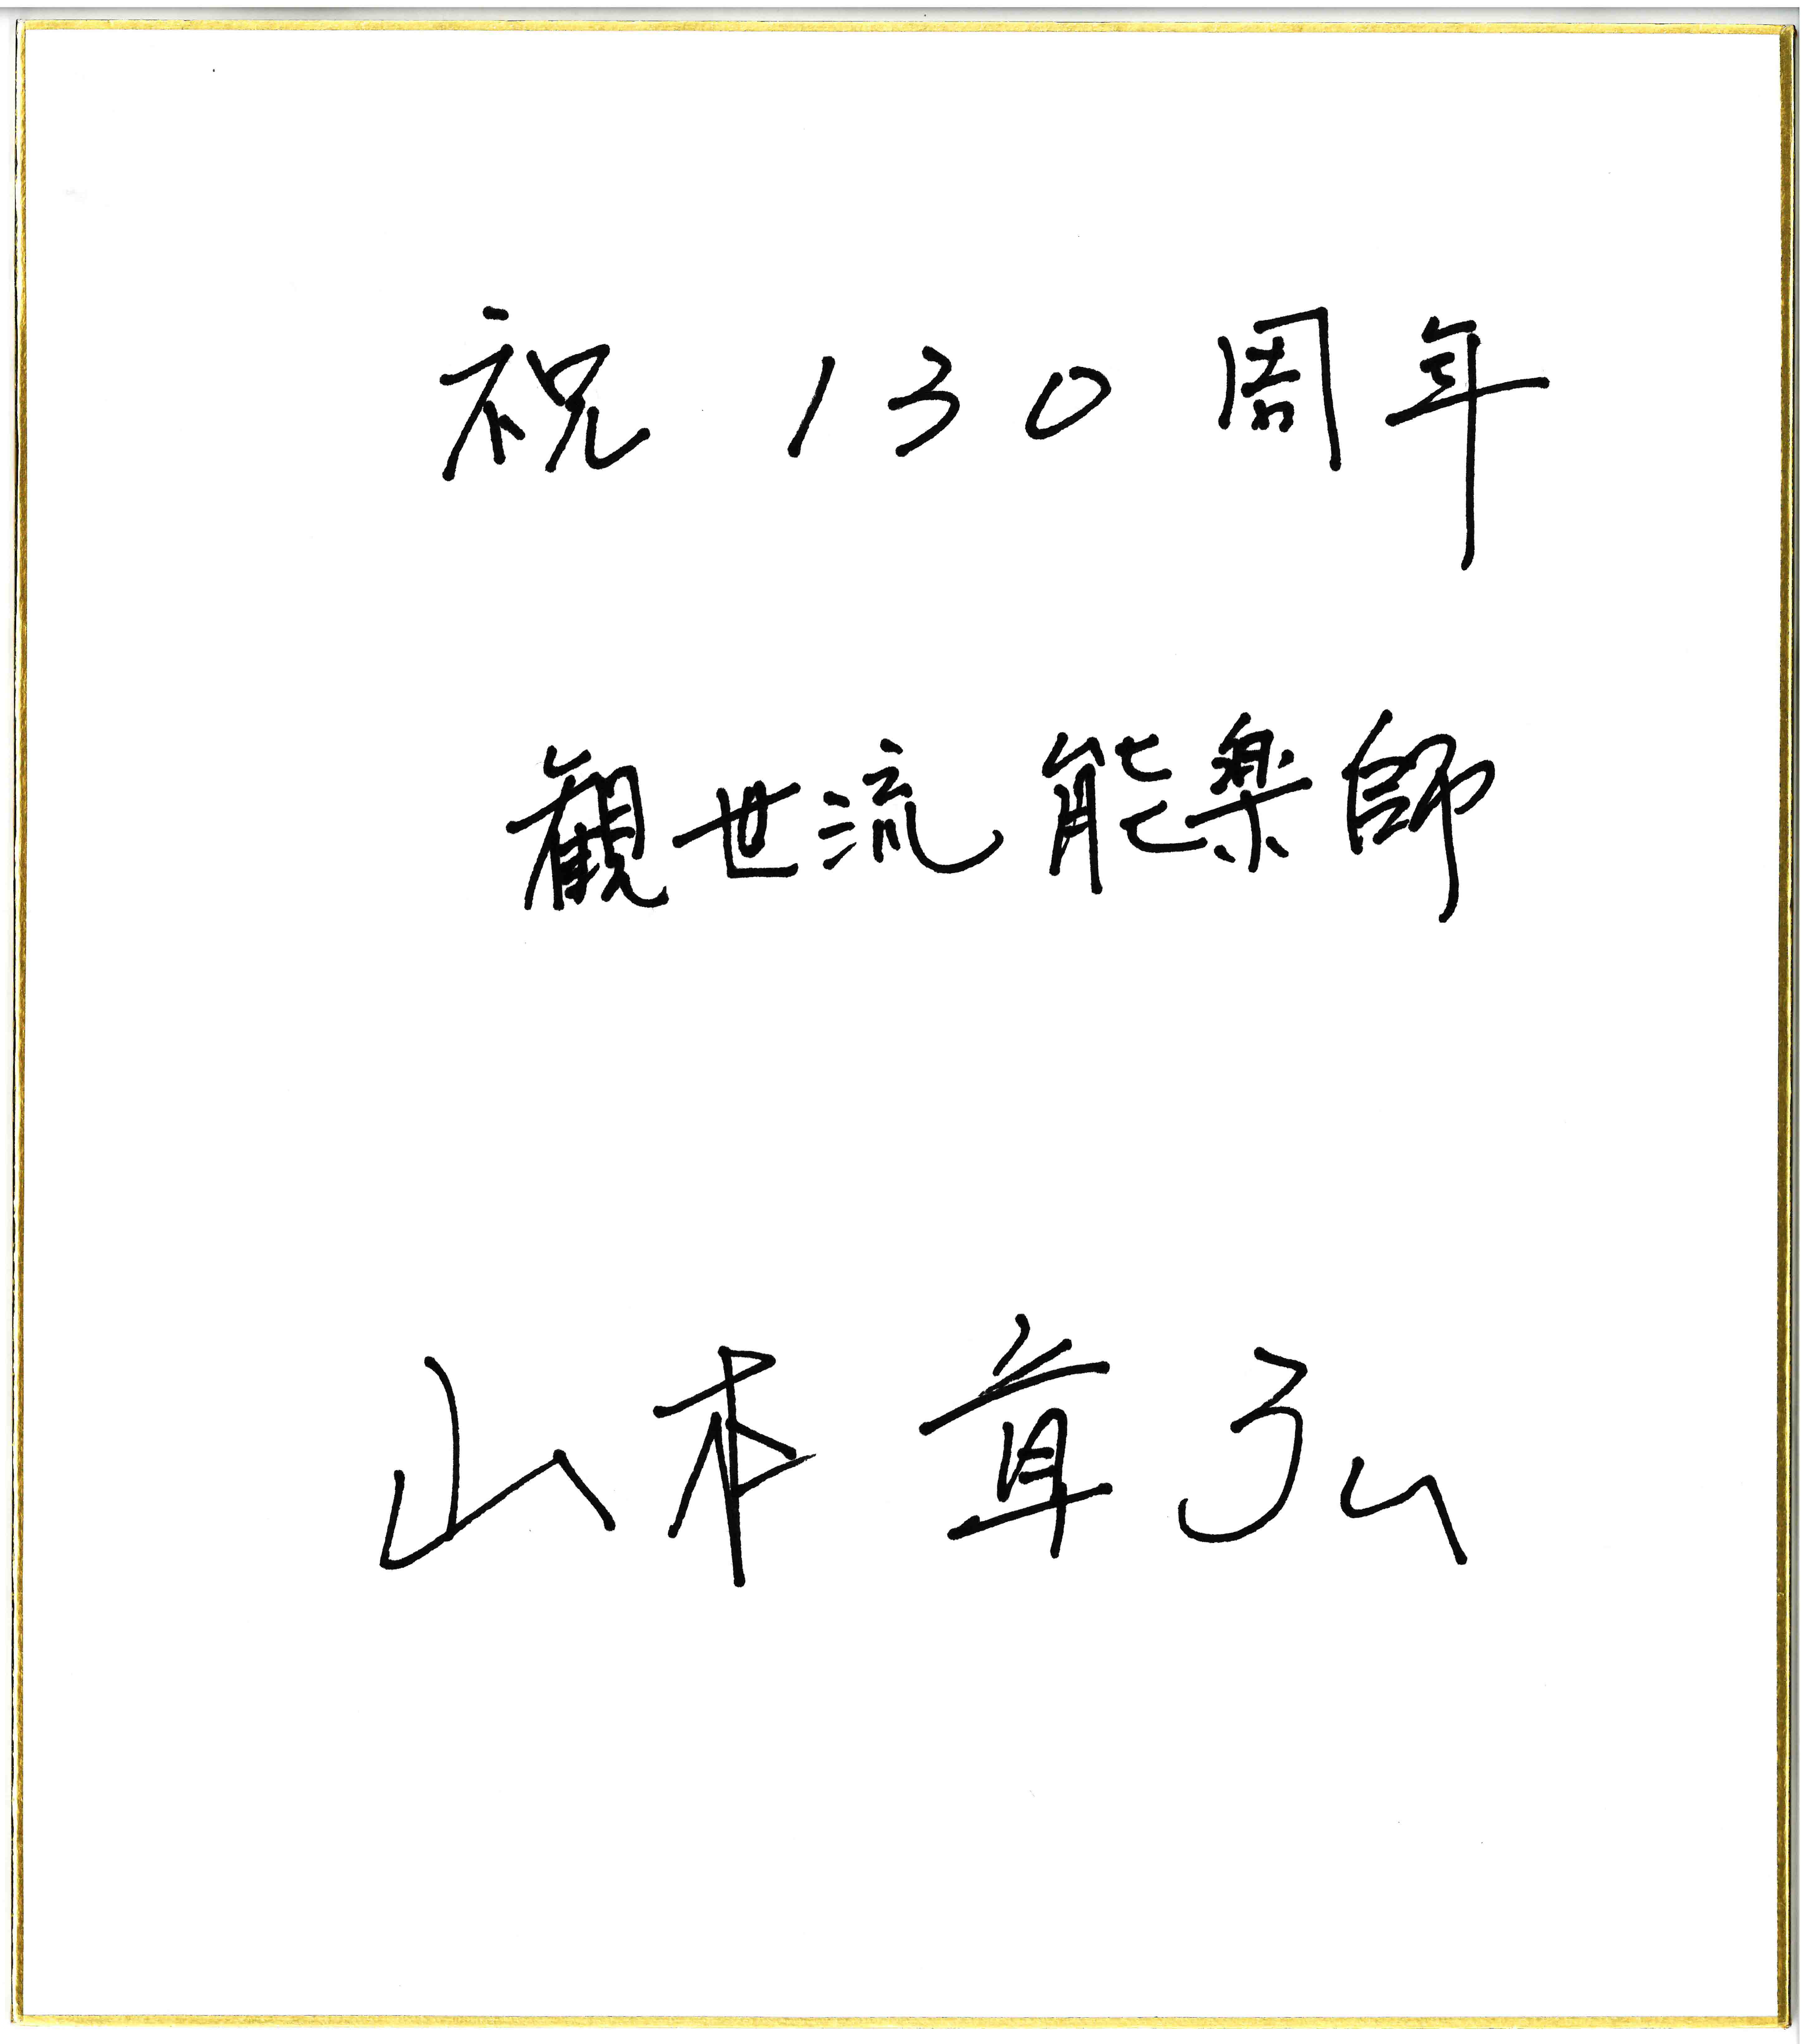 祝 130周年
観世流 能楽師
山本章弘